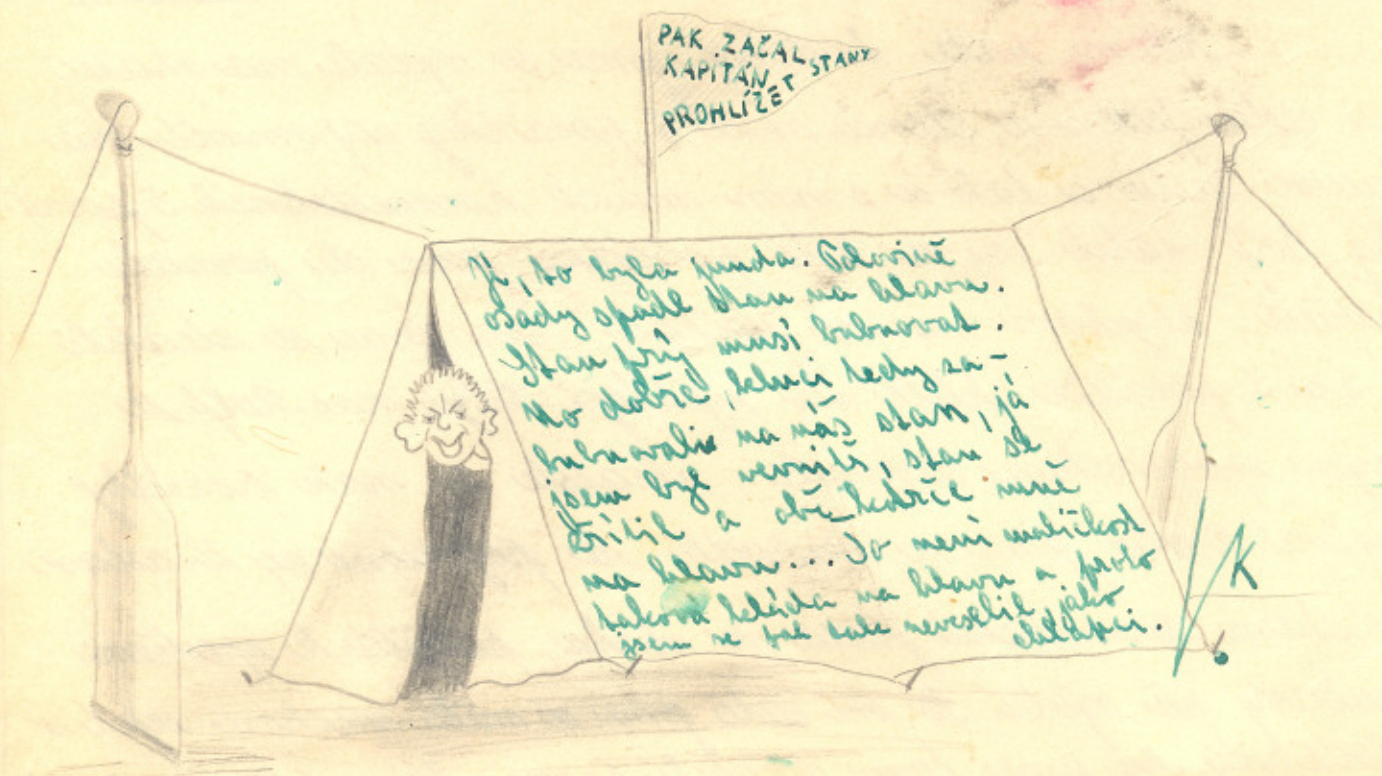 PAK ZAČAL
KAPITÁN
PROHLÍŽET STANY
Ji, to byla junda. Polovině
osady spadl stan na hlavu.
Stan prý musí bubnovat.
No dobře, kluci tedy za-
bubnovali na náš stan, já
jsem byl vevnitř, stan se
zřítil a obě kdrče mně
na hlavu... To není maličkost
taková kláda na hlavu a proto
jsem se pak tak neveselil jako
chlapci.
K